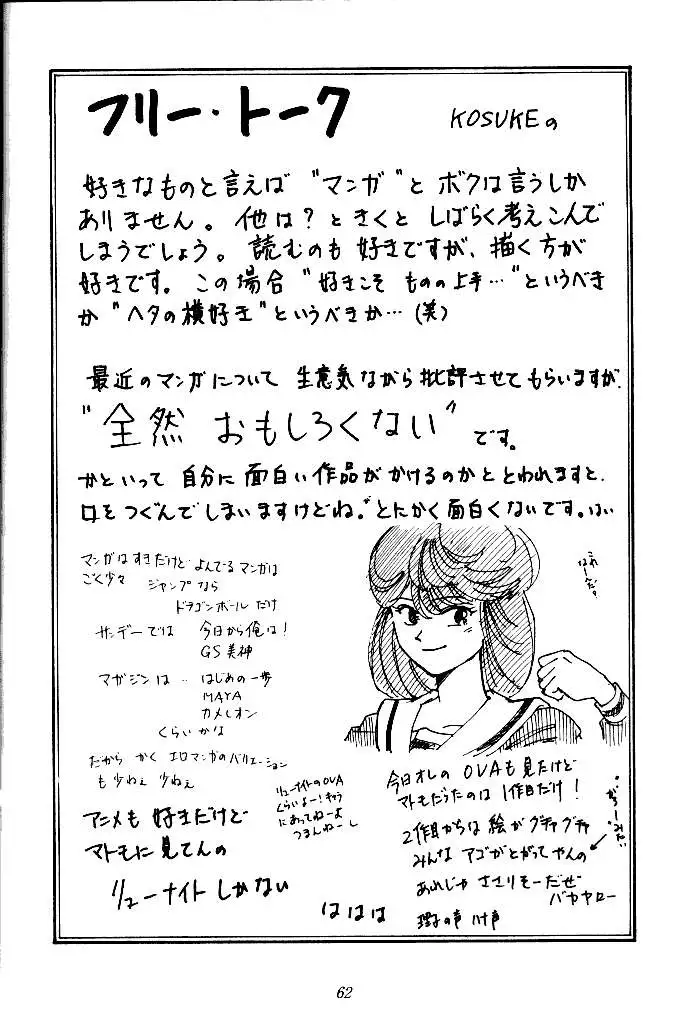 フリー・トーク KOSUKEの
好きなものと言えば "マンガ" と ボクは言うしか
ありません。他は？ときくと しばらく考えこんで
しまうでしょう。読むのも 好きですが、描く方が
好きです。この場合 "好きこそ ものの上手…" というべき
か "ヘタの横好き" というべきか…(笑)
最近のマンガについて 生意気ながら批評させてもらいますが、
"全然 おもしろくない" です。
かといって 自分に面白い作品がかけるのかととわれますと、
口をつぐんでしまいますけどね。とにかく面白くないです。はい
マンガはすきだけど よんでるマンガは
ごく少々 ジャンプなら
ドラゴンボールだけ
サンデーでは 今日から俺は！
GS美神
マガジンは … はじめの一歩
MAYA
カメレオン
くらいかな
だから かく エロマンガのバリエーション
も少ねぇ 少ねぇ
アニメも 好きだけど
マトモに見てんの
リューナイト しかない
ははは
リューナイトのOVA
くらいよー！キャラ
にあってねーよ
つまんねーし
今日オレの OVAも見たけど
マトモだったのは 1作目だけ！
2作目からは 絵が グチャグチャ
みんな アゴがとがってやんの
あれじゃ ささりそーだぜ
バカヤロー
理子の声